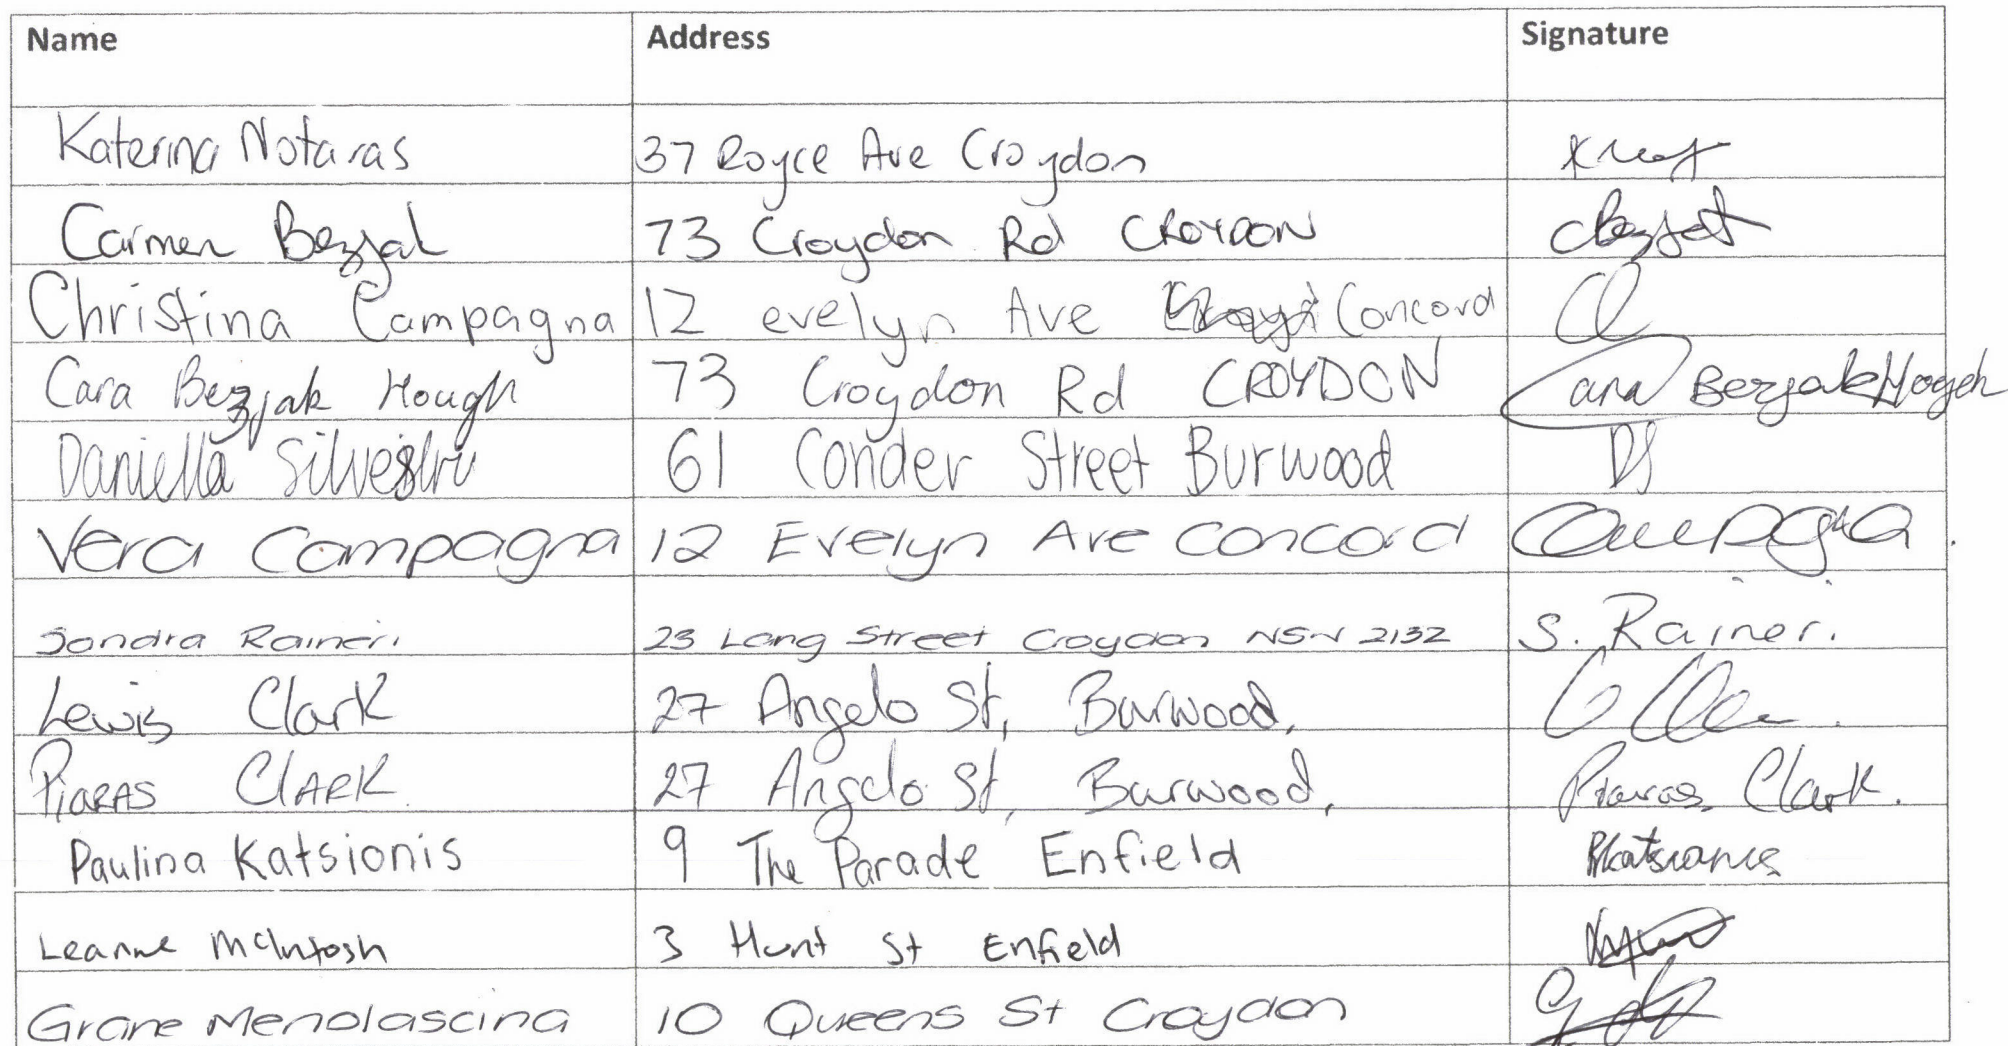 Name Address Signature
Katerina Notaras 37 Royce Ave Croydon
Carmen Bezjak 73 Croydon Rd CROYDON
Christina Campagna 12 evelyn Ave Concord
Cara Bezjak Hough 73 Croydon Rd CROYDON Cara Bezjak Hough
Daniella Silvestri 61 Conder Street Burwood DS
Vera Campagna 12 Evelyn Ave Concord Campagna.
Sandra Raineri 23 Lang Street Croydon NSW 2132 S. Raineri
Lewis Clark 27 Angelo St, Burwood,
Piaras CLARK 27 Angelo St, Burwood, Piaras Clark.
Paulina Katsionis 9 The Parade Enfield PKatsionis
Leanne McIntosh 3 Hunt St Enfield
Menolascina 10 Queens St Croydon